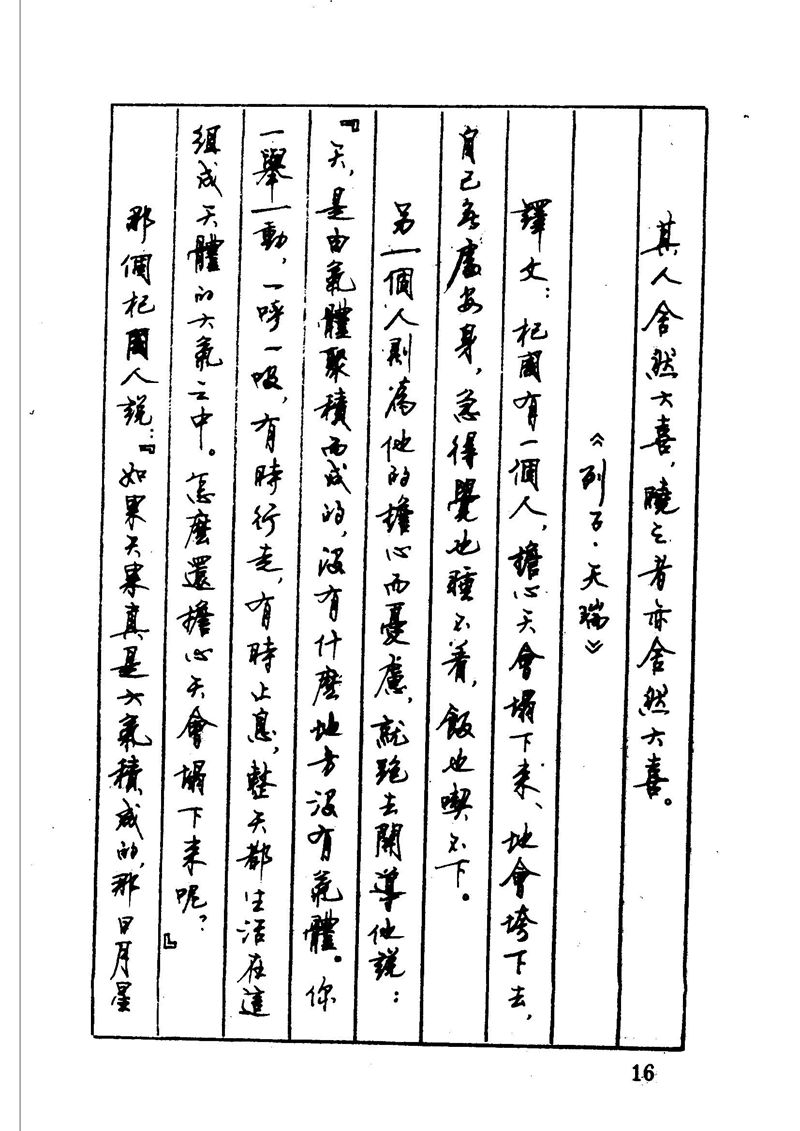 其人舍然大喜，曉之者亦舍然大喜。
《列子·天瑞》
譯文：杞國有一個人，擔心天會塌下來、地會垮下去，
自己無處安身，急得覺也睡不着，飯也喫不下。
另一個人則為他的擔心而憂慮，就跑去開導他說：
『天，是由氣體聚積而成的，沒有什麼地方沒有氣體。你
一舉一動，一呼一吸，有時行走，有時止息，整天都生活在這
組成天體的大氣之中。怎麼還擔心天會塌下來呢？』
那個杞國人說：『如果天果真是大氣積成的，那日月星
16